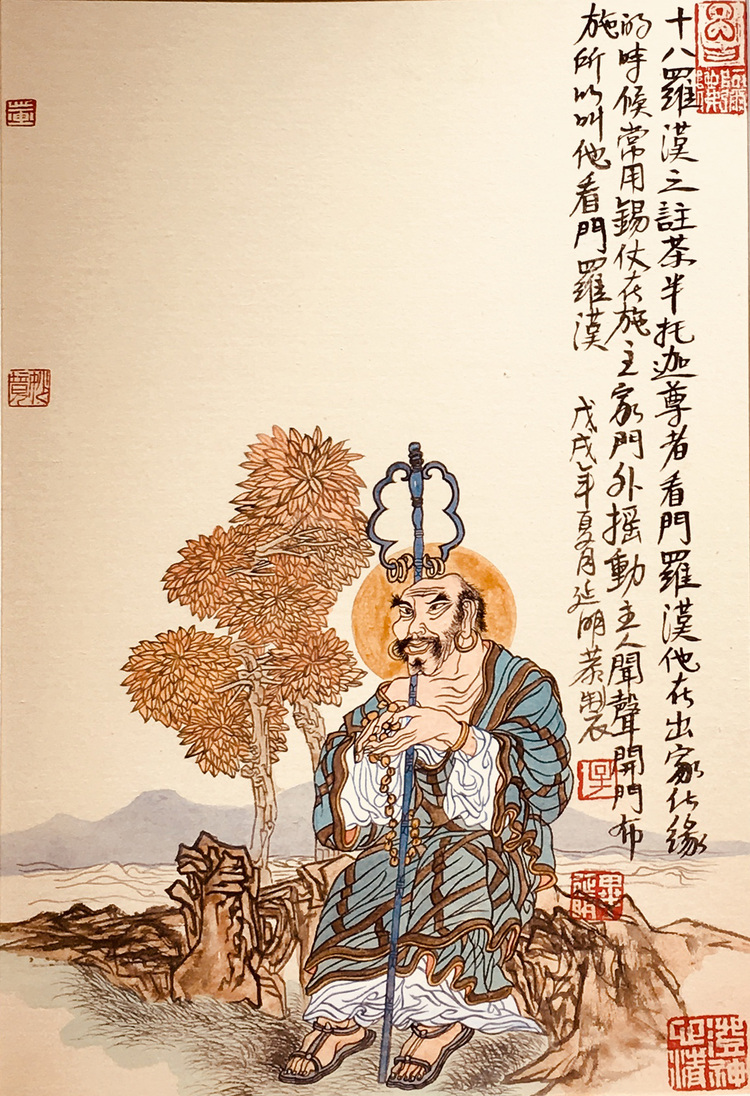 十八羅漢之註茶半托迦尊者看門羅漢他在出家化缘
的時候常用錫仗在施主家門外摇動主人聞聲開門布
施所以叫他看門羅漢
戊戌年夏月延明恭製